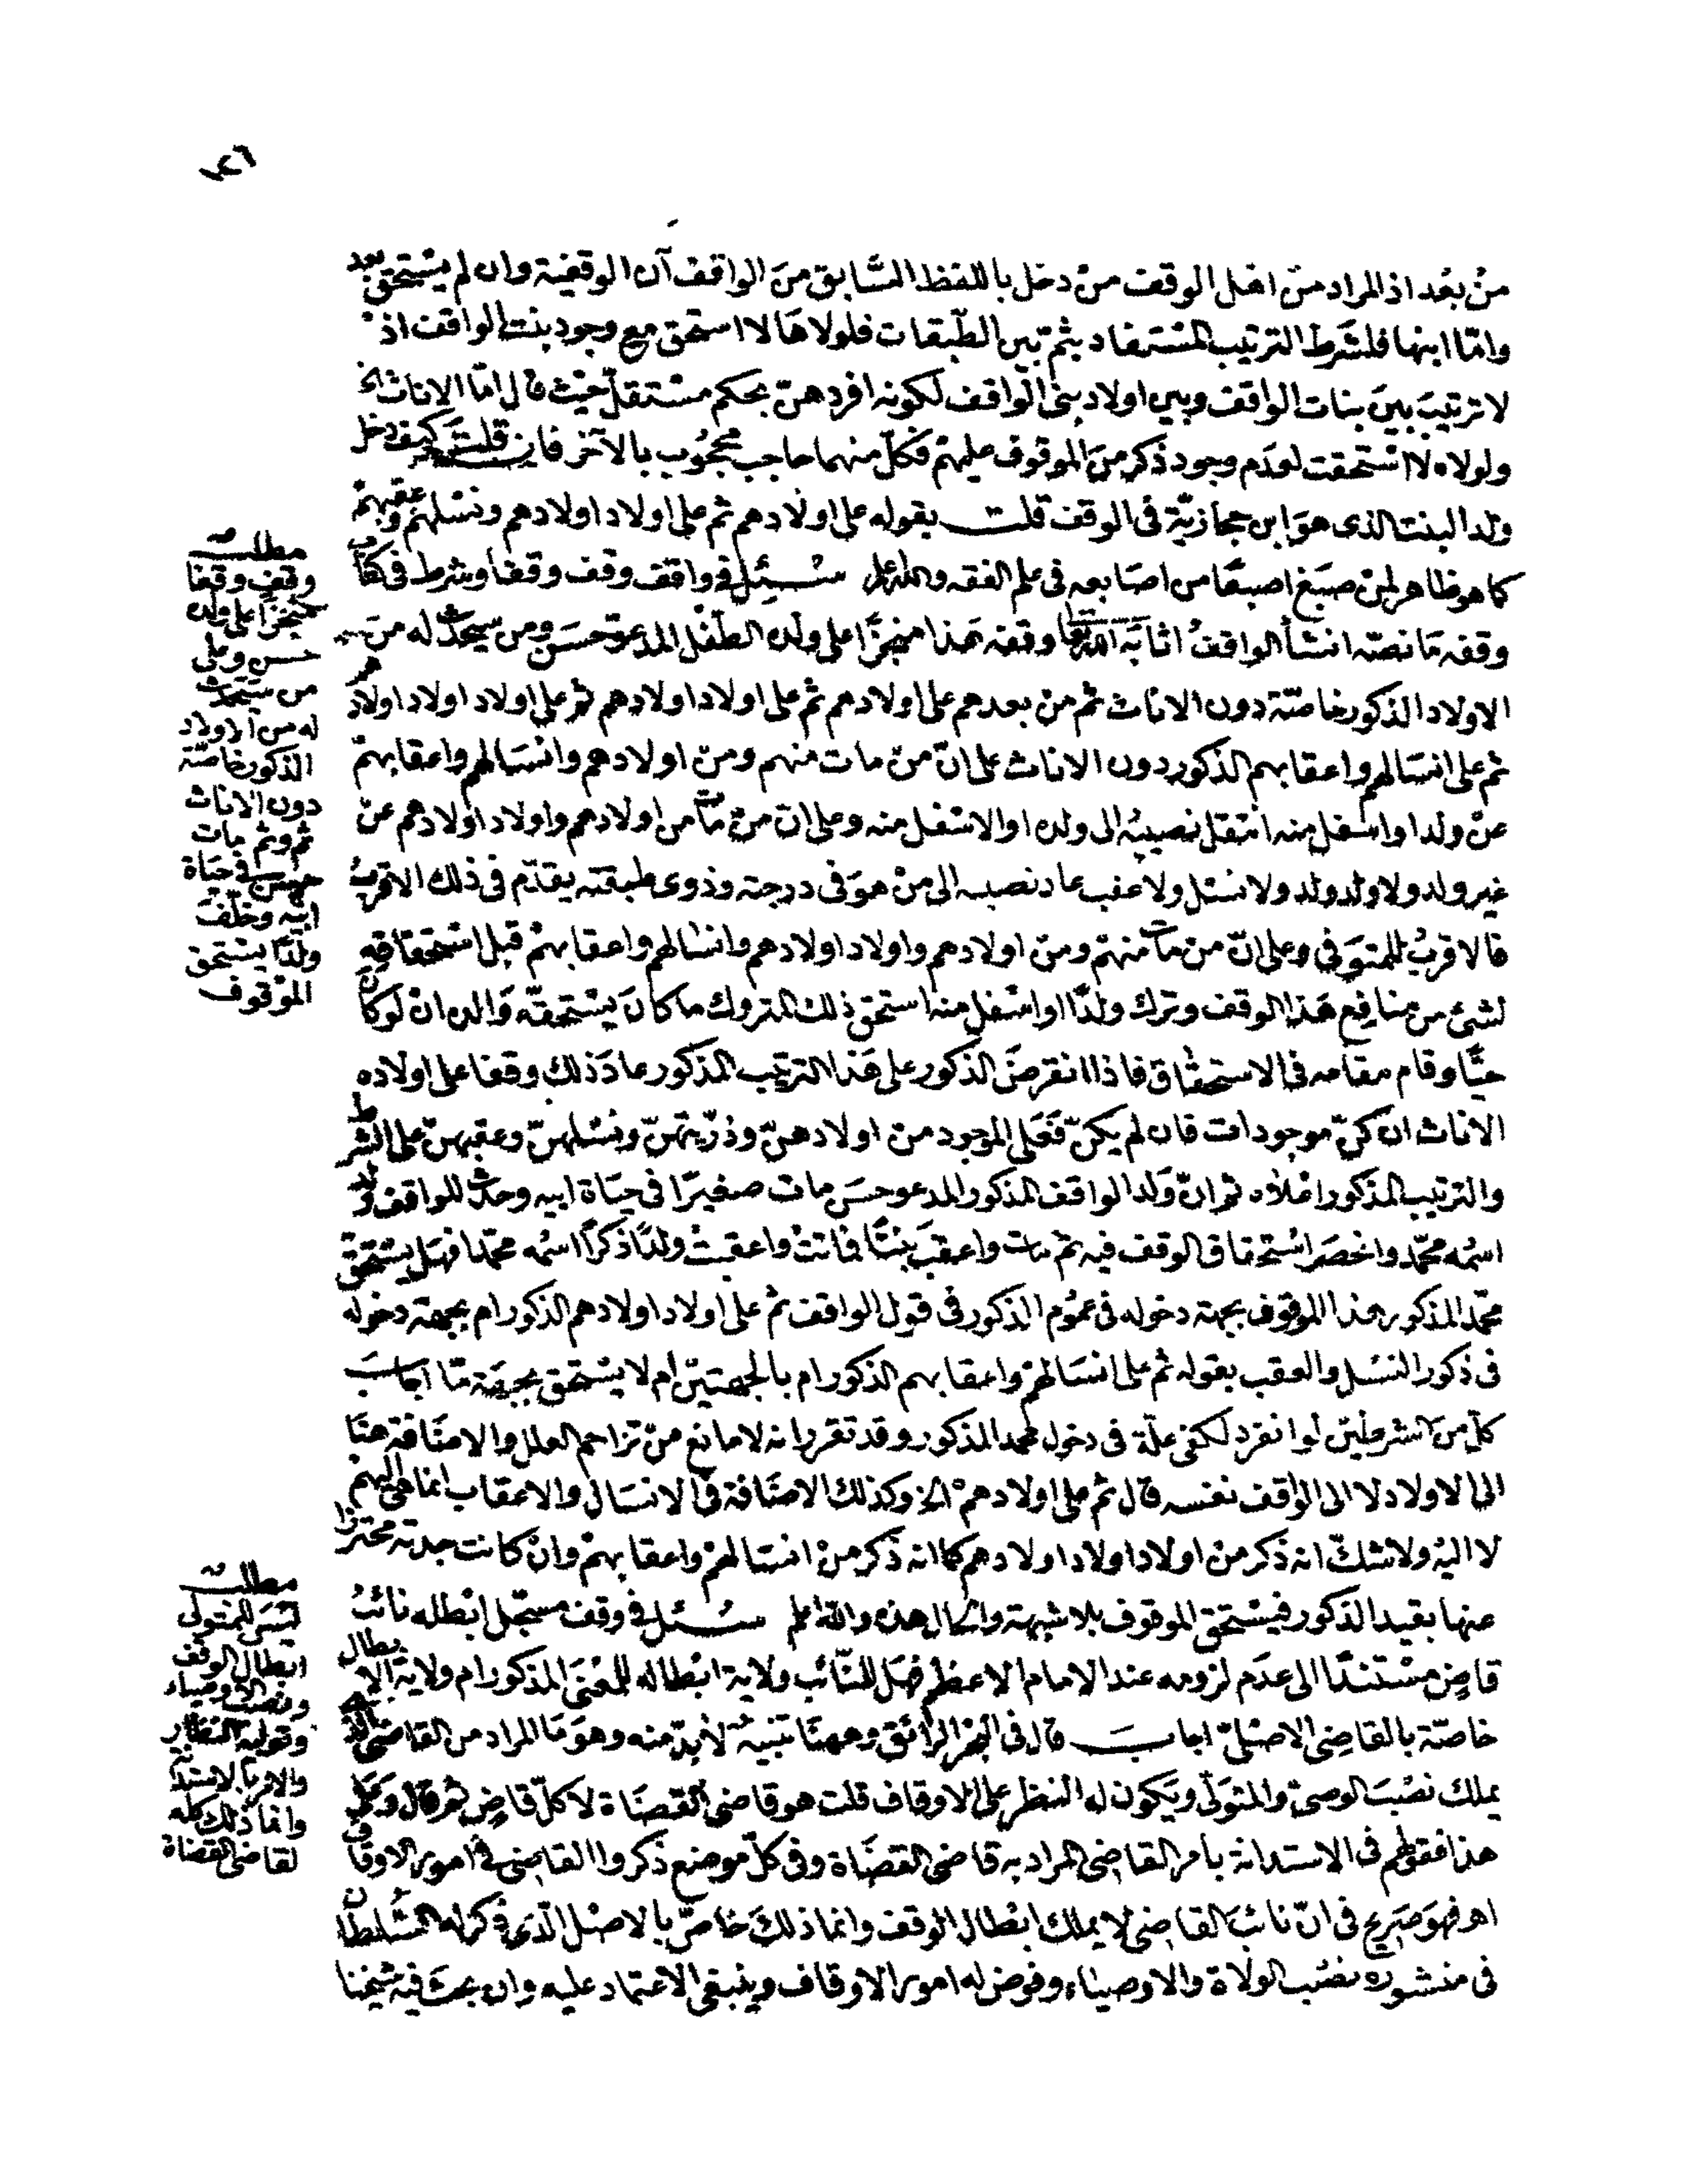 ١٢٦
من بعد اذ المراد من اهل الوقف من دخل باللفظ السابق من الواقف آن الوقفية وان لم يستحق بعد
وامّا ابنها فلشرط الترتيب المستفاد بثم بين الطبقات فلولاها لا استحق مع وجود بنت الواقف اذ
لا ترتيب بين بنات الواقف وبين اولاد بنى الواقف لكونه افردهنّ بحكم مستقلّ حيث قال امّا الاناث الخ
ولولاه لا استحقت لعدم وجود ذكر من الموقوف عليهم فكلّ منهما حاجب محجوب بالآخر فان قلت كيف دخل
ولد البنت الذى هو ابن حجازيّة فى الوقف قلت بقوله على اولادهم ثم على اولاد اولادهم ونسلهم وعقبهم
كما هو ظاهر لمن صبغ اصبعًا من اصابعه فى علم الفقه والله اعلم سئل فى واقف وقف وقفا وشرط فى كتاب
وقفه ما نصّه انشأ الواقف اثابه الله تعالى وقفه هذا منجزًا على ولده الطفل المدعو حسن ومن سيحدث له من
الاولاد الذكور خاصّة دون الاناث ثم من بعدهم على اولادهم ثم على اولاد اولادهم ثم على اولاد اولاد اولادهم
ثم على انسالهم واعقابهم الذكور دون الاناث على انّ من مات منهم ومن اولادهم وانسالهم واعقابهم
عن ولد او اسفل منه انتقل نصيبه الى ولده او الاسفل منه وعلى ان من مات من اولادهم واولاد اولادهم عن
غير ولد ولا ولد ولد ولا نسل ولا عقب عاد نصيبه الى من هو فى درجته وذوى طبقته يقدّم فى ذلك الاقرب
فالاقرب للمتوفى وعلى انّ من مات منهم ومن اولادهم واولاد اولادهم وانسالهم واعقابهم قبل استحقاقه
لشئ من منافع هذا الوقف وترك ولدًا او اسفل منه استحق ذلك المتروك ما كان يستحقّه والده ان لو كان
حيًّا وقام مقامه فى الاستحقاق فاذا انقرض الذكور على هذا الترتيب المذكور عاد ذلك وقفا على اولاده
الاناث ان كنّ موجودات فان لم يكنّ فعلى الموجود من اولادهنّ وذرّيتهنّ ونسلهنّ وعقبهنّ على الشرط
والترتيب المذكور اعلاه ثم انّ ولد الواقف المذكور المدعو حسن مات صغيرًا فى حياة ابيه وحدث للواقف ولد
اسمه محمّد وانحصر استحقاق الوقف فيه ثم مات واعقب بنتًا فماتت واعقبت ولدًا ذكرًا اسمه محمّد فهل يستحق
محمّد المذكور هذا الموقوف بجهة دخوله فى عموم الذكور فى قول الواقف ثم على اولاد اولادهم الذكور ام بجهة دخوله
فى ذكور النسل والعقب بقوله ثم على انسالهم واعقابهم الذكور ام بالجهتين ام لا يستحق بجهة ما اجاب
كلّ من الشرطين لو انفرد لكفى علّة فى دخول محمد المذكور وقد تقرر انه لا مانع من تزاحم العلل والاضافة هنا
الى الاولاد لا الى الواقف نفسه قال ثم على اولادهم الخ وكذلك الاضافة فى الانسال والاعقاب انما هى اليهم
لا اليه ولا شكّ انه ذكر من اولاد اولاد اولادهم كما انه ذكر من انسالهم واعقابهم وان كانت جدته محترزا
عنها بقيد الذكور فيستحق الموقوف بلا شبهة والحال هذه والله اعلم سئل فى وقف مسجّل ابطله نائب
قاضٍ مستندًا الى عدم لزومه عند الامام الاعظم فهل للنّائب ولاية ابطاله للمعنى المذكور ام ولاية الابطال
خاصّة بالقاضى الاصلىّ اجاب قال فى البحر الرائق وههنا تنبيه لا بدّ منه وهو ما المراد من القاضى الذى
يملك نصب الوصىّ والمتولّى ويكون له النظر على الاوقاف قلت هو قاضى القضاة لا كلّ قاضٍ ثم قال وعلى
هذا فقولهم فى الاستدانة بامر القاضى المراد به قاضى القضاة وفى كلّ موضع ذكروا القاضى فى امور الاوقاف
اهـ فهو صريح فى انّ نائب القاضى لا يملك ابطال الوقف وانما ذلك خاصّ بالاصل الّذى ذكر له السّلطان
فى منشوره نصب الولاة والاوصياء وفوض له امور الاوقاف وينبغى الاعتماد عليه وان بحث فيه شيخنا
مطلب
وقف وقفا
منجزًا على ولده
حسن وعلى
من سيحدث
له من الاولاد
الذكور خاصّة
دون الاناث
ثم وثم مات
حسن فى حياة
ابيه وخلّف
ولدًا يستحق
الموقوف
مطلب
ليس للمتولى
ابطال الوقف
ونصب الاوصياء
وتولية النظار
والامر بالاستدانة
وانما ذلك كله
لقاضى القضاة